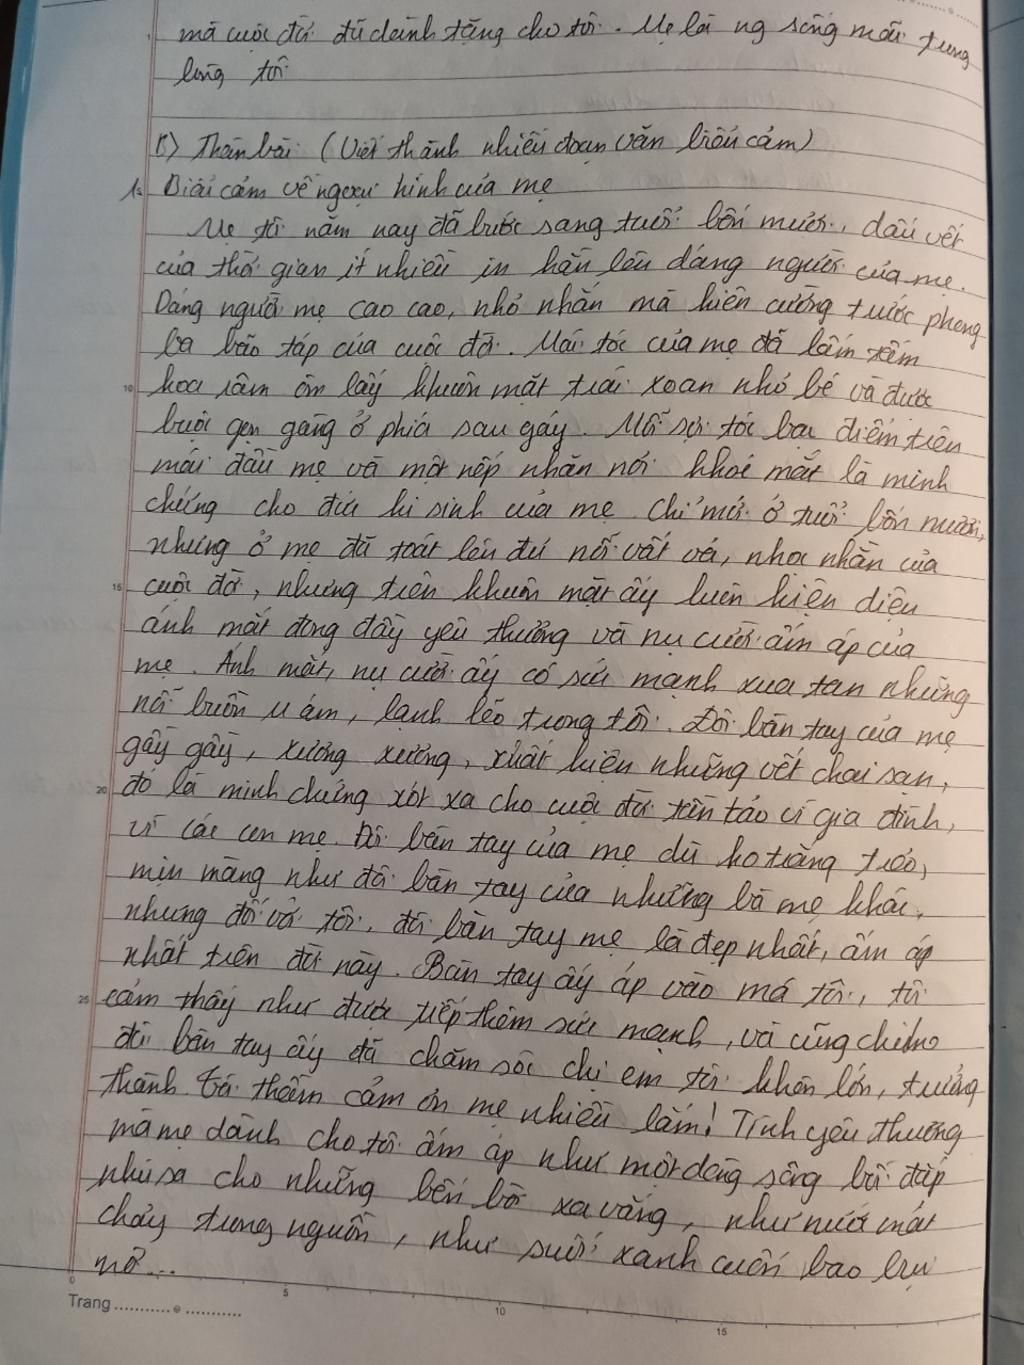 mà cuộc đời đã dành tặng cho tôi. Mẹ là ng sống mãi trong
lòng tôi
B) Thân bài (Viết thành nhiều đoạn văn biểu cảm)
1. Biểu cảm về ngoại hình của mẹ
Mẹ tôi năm nay đã bước sang tuổi bốn mươi, dấu vết
của thời gian ít nhiều in hằn lên dáng người của mẹ.
Dáng người mẹ cao cao, nhỏ nhắn mà kiên cường trước phong
ba bão táp của cuộc đời. Mái tóc của mẹ đã lấm tấm
hoa râm ôm lấy khuôn mặt trái xoan nhỏ bé và được
buộc gọn gàng ở phía sau gáy. Mỗi sợi tóc bạc điểm trên
mái đầu mẹ và một nếp nhăn nơi khoé mắt là minh
chứng cho đức hi sinh của mẹ. Chỉ mới ở tuổi bốn mươi,
nhưng ở mẹ đã toát lên đủ nỗi vất vả, nhọc nhằn của
cuộc đời, nhưng trên khuôn mặt ấy luôn hiện diện
ánh mắt đong đầy yêu thương và nụ cười ấm áp của
mẹ. Ánh mắt, nụ cười ấy có sức mạnh xua tan những
nỗi buồn u ám, lạnh lẽo trong tôi. Đôi bàn tay của mẹ
gầy gầy, xương xương, xuất hiện những vết chai sạn,
đó là minh chứng xót xa cho cuộc đời tần tảo vì gia đình,
vì các con mẹ. Đôi bàn tay của mẹ dù ko trắng trẻo,
mịn màng như đôi bàn tay của những bà mẹ khác,
nhưng đối với tôi, đôi bàn tay mẹ là đẹp nhất, ấm áp
nhất trên đời này. Bàn tay ấy áp vào má tôi, tôi
cảm thấy như được tiếp thêm sức mạnh, và cũng chính
đôi bàn tay ấy đã chăm sóc chị em tôi khôn lớn, trưởng
thành. Tôi thầm cảm ơn mẹ nhiều lắm! Tình yêu thương
mà mẹ dành cho tôi ấm áp như một dòng sông bồi đắp
phù sa cho những bến bờ xa vắng, như nước mát
chảy trong nguồn, như suối xanh cuốn bao bụi
mờ...
Trang